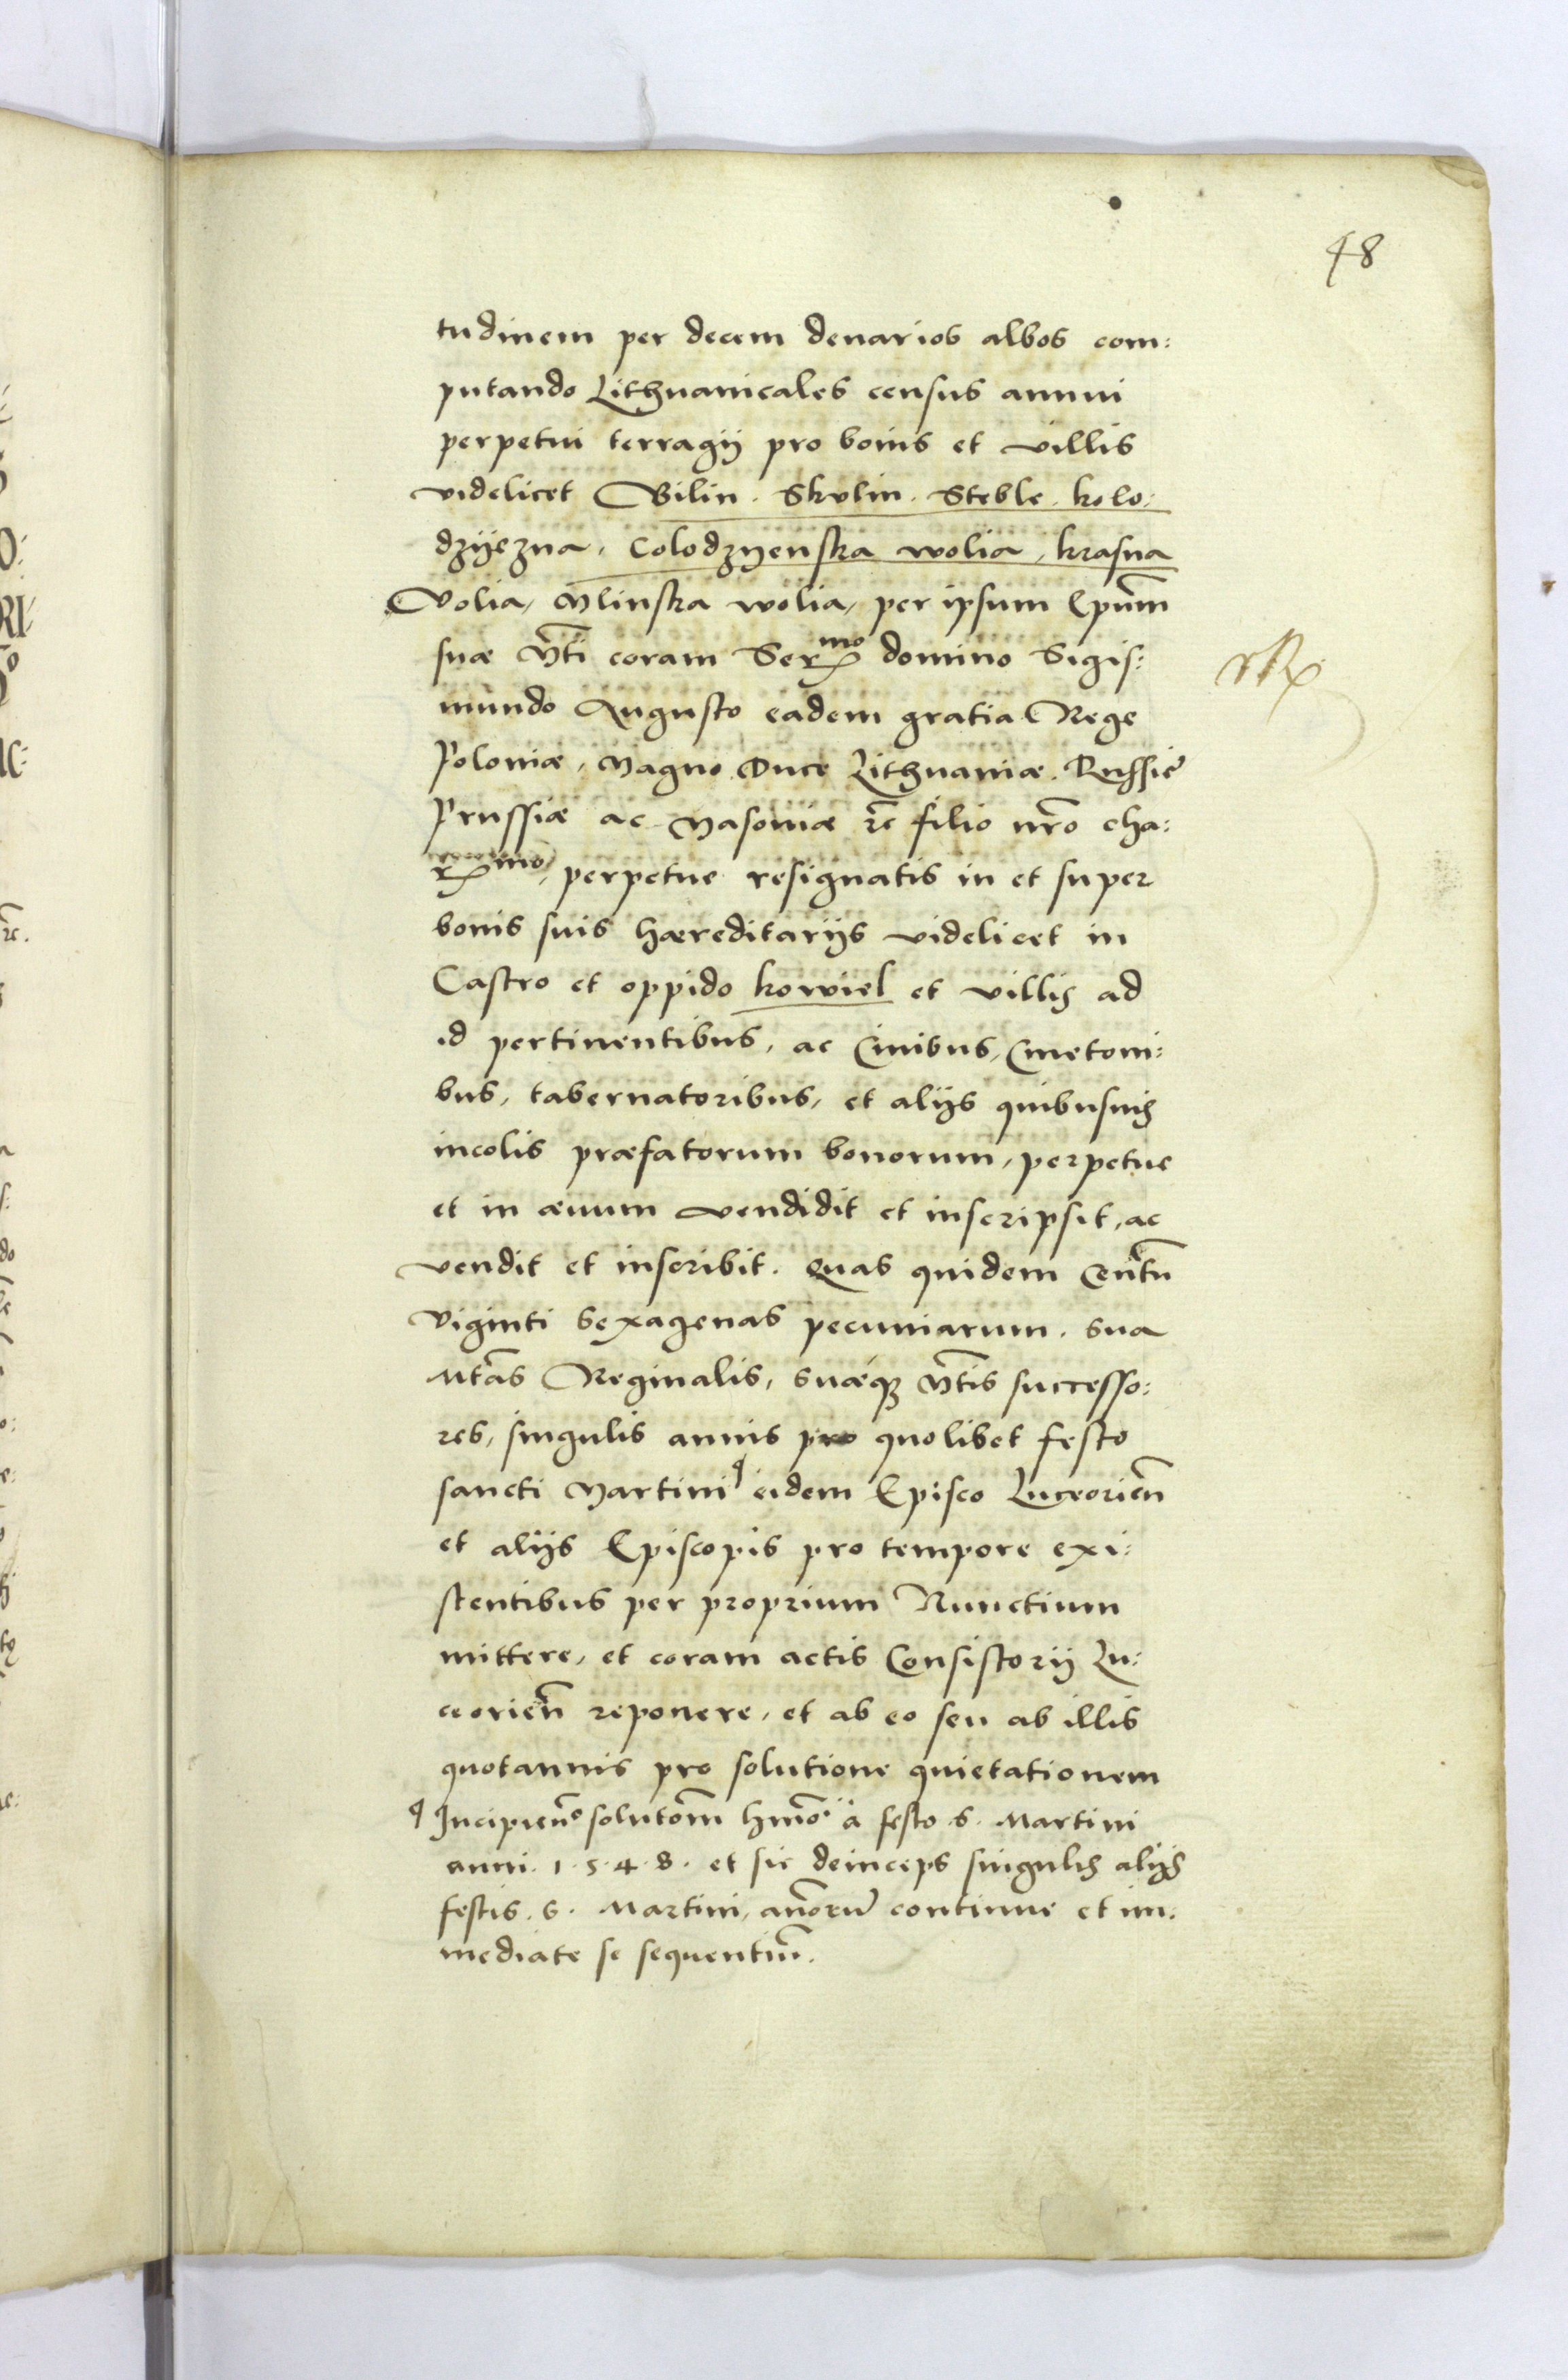 48
tudinem per decem denarios albos com:
putando Lithuanicales census annui
perpetui terragij pro bonis et villis
videlicet Bilin. Skulin. Steble. kolo:
dzijezna, Colodzyenska wolia, krasna
Volia, Mlinska wolia, per ipsum Epūm
suæ Mti coram Sermo domino Sigis:
mundo Augusto eadem gratia Rege
Poloniæ, Magno Duce Lithuaniæ. Russiæ
Prussiæ ac Masoviæ rc filio nro cha:
rmo, perpetue resignatis in et super
bonis suis hæreditarijs videlicet in
Castro et oppido kowiel et villis ad
id pertinentibus, ac Civibus, Cmetoni:
bus, tabernatoribus, et alijs quibusuis
incolis præfatorum bonorum, perpetue
et in ævum vendidit et inscripsit, ac
vendit et inscribit. Quas quidem Centū
viginti sexagenas pecuniarum. sua
Mtas Reginalis, suæq₃ Mtis successo:
res, singulis annis pro quolibet festo
sancti Martini eidem Episco Luceorien̄
et alijs Episcopis pro tempore exi:
stentibus per proprium Nunctium
mittere, et coram actis Consistorij Lu:
ceorien̄ reponere, et ab eo seu ab illis
quotannis pro solutione quietationem
Incipien̄ solutōm hmōi à festo S. Martini
anni. 1.5.4.8. et sic deinceps singulis alijs
festis. S. Martini, annorū continue et im:
mediate se sequentiū.